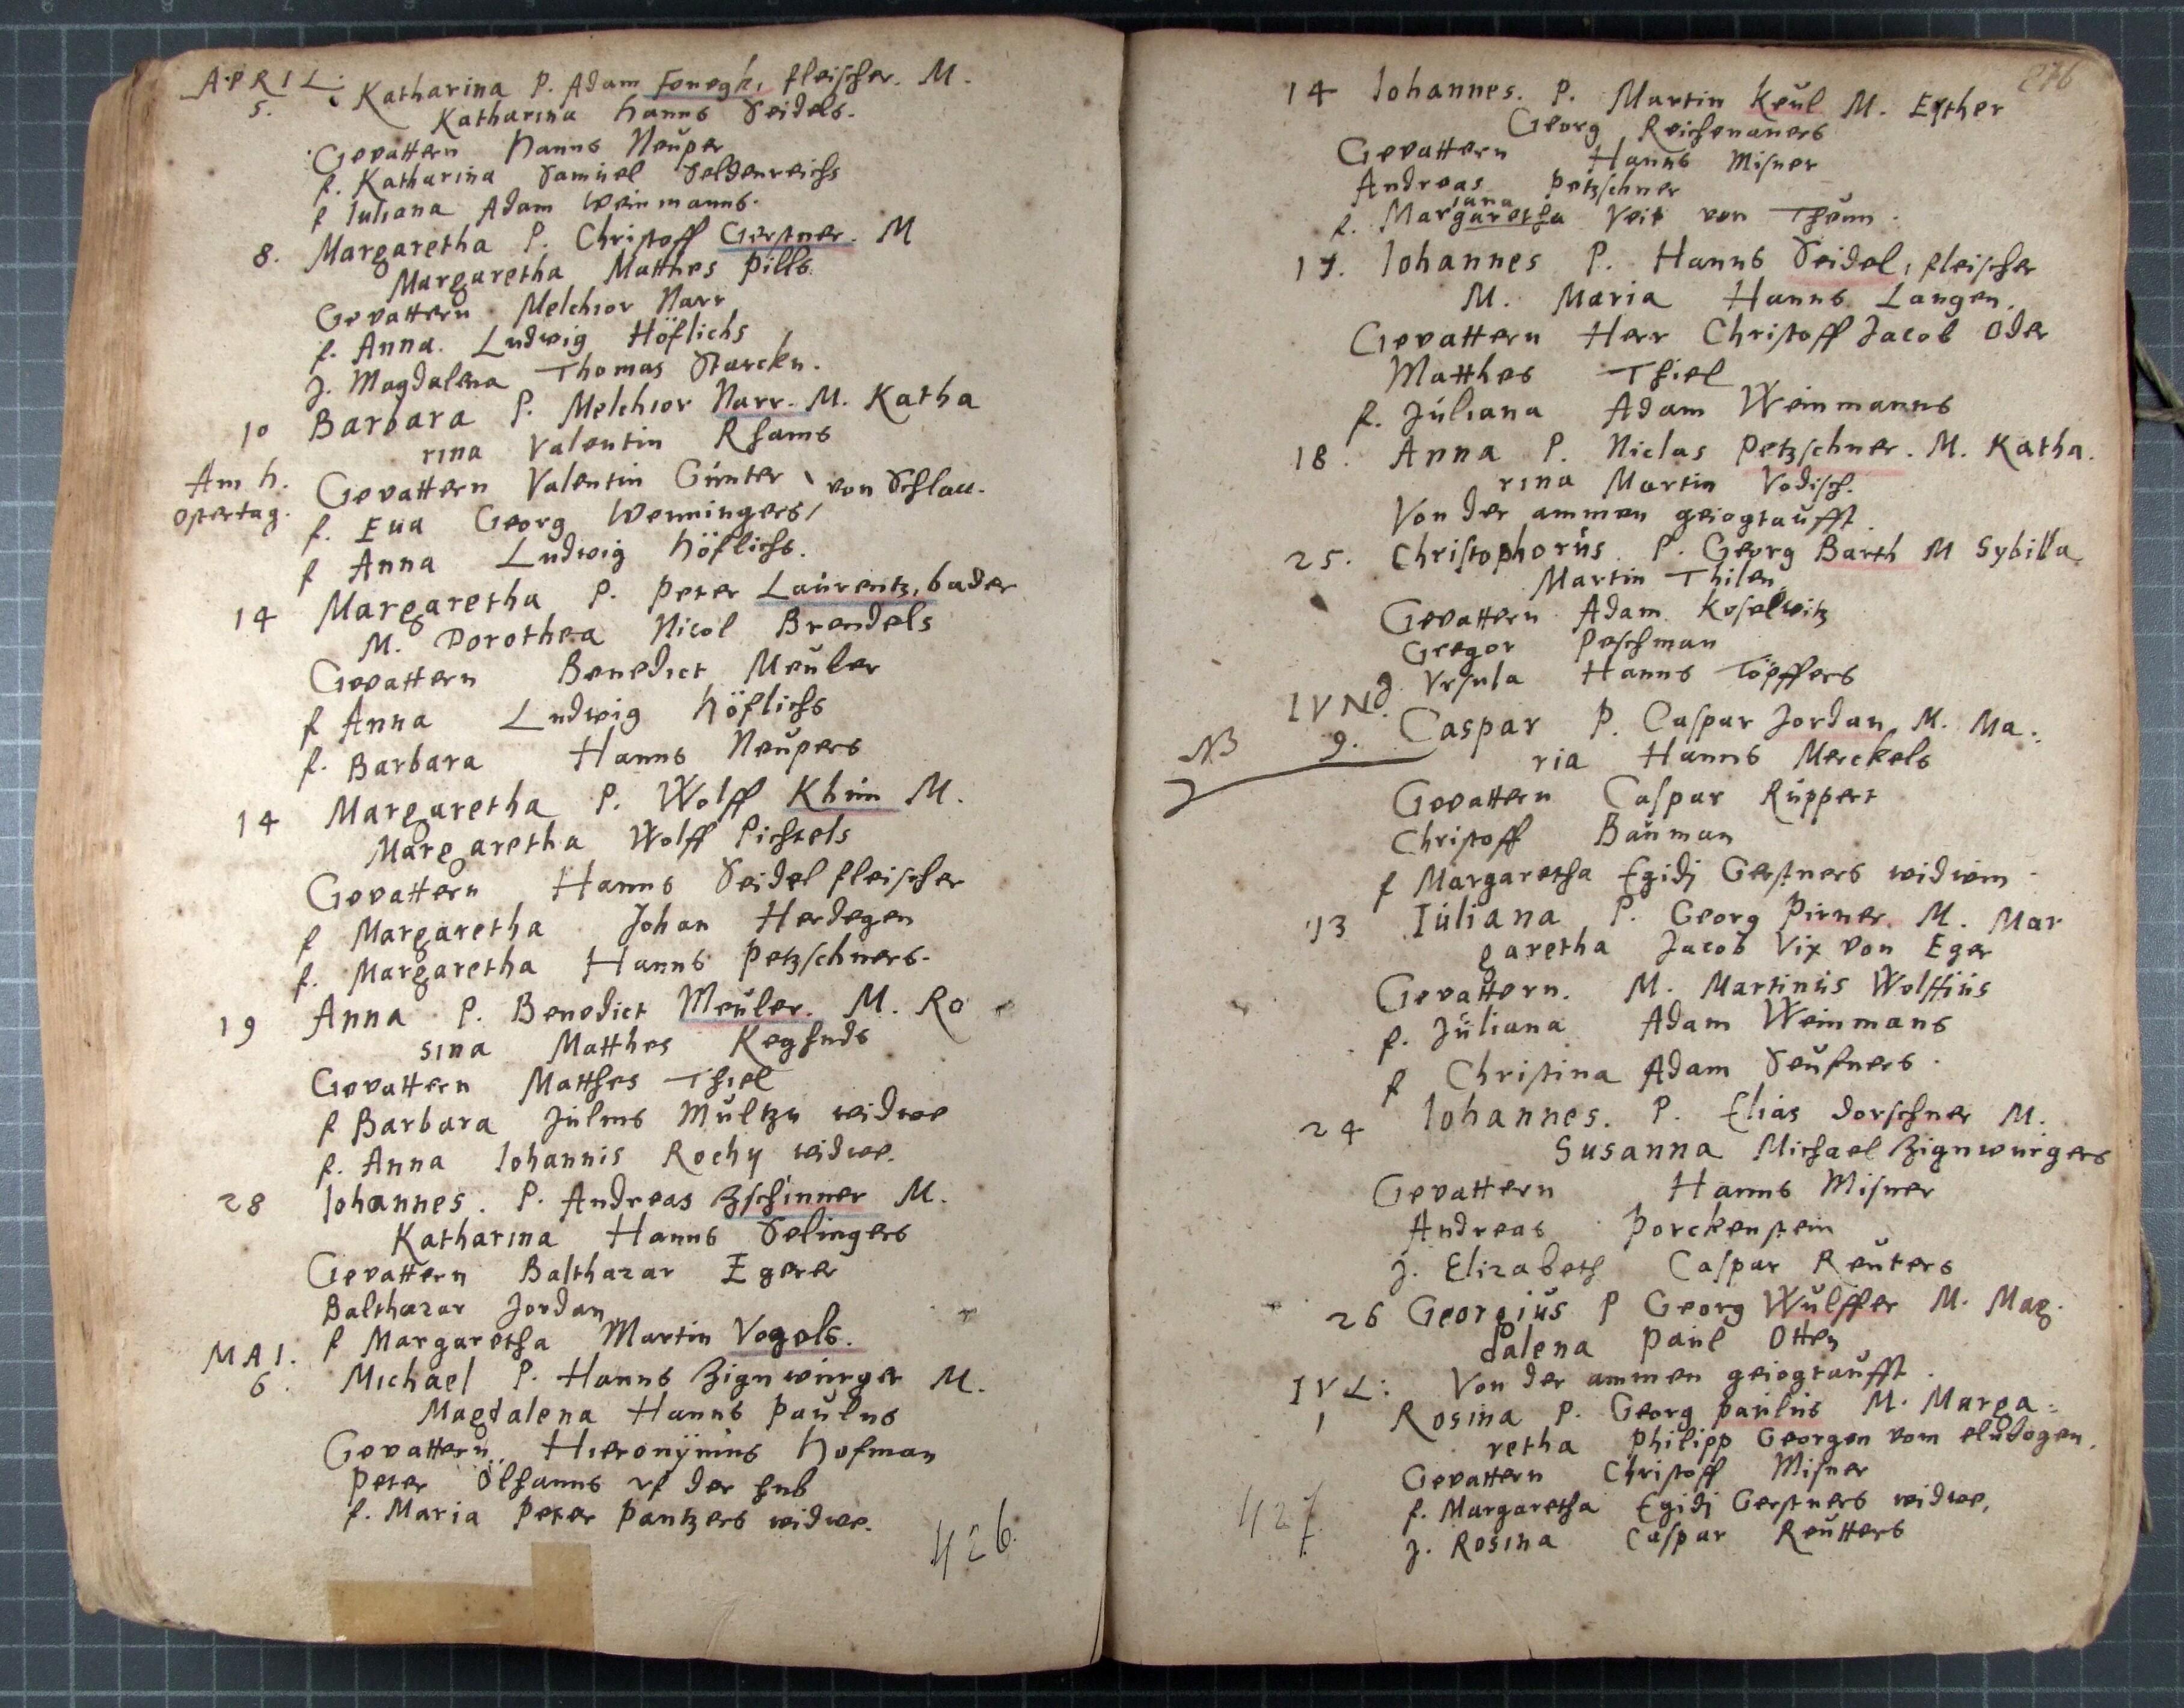 APRIL:
5. Katharina P. Adam Fonegh, fleischer. M.
Katharina Hanns Seidels.
Gevattern Hanns Neuper
f. Katharina Samuel Seldenreichs
f Iuliana Adam Weinmanns.
8. Margaretha P. Christoff Gerstner. M
Margaretha Matthes Pills.
Gevattern Melchior Narr
f. Anna. Ludwig Höflichs
J. Magdalena Thomas Starckn.
10 Barbara P. Melchior Narr. M. Katha
rina Valentin Rhams
Am h. Ostertag. Gevattern Valentin Günter von Schlau.
f. Eua Georg Wenningers,
f Anna Ludwig Höflichs.
14 Margaretha P. Peter Laürentz, bader
M. Dorothea Nicol Brendels
Gevattern Benedict Meüler
f Anna Ludwig Höflichs
f. Barbara Hanns Neüpers
14 Margaretha P. Wolff Khün M.
Margaretha Wolff Pichtels
Gevattern Hanns Seidel fleischer
f Margaretha Johan Herdegen
f. Margaretha Hanns Petzschners.
19 Anna P. Benedict Meüler. M. Ro
sina Matthes Keghuds
Gevattern Matthes Thiel
f Barbara Julius Mültzn widwe
f. Anna Iohannis Rochy widwe.
28 Iohannes. P. Andreas Zschinner M.
Katharina Hanns Selingers
Gevattern Balthazar Egerer
Balthazar Jordan
f Margaretha Martin Vogels.
MAI.
6. Michael P. Hanns Zignwürger M.
Magdalena Hanns Paülus
Gevattern Hieronÿmus Hofman
Peter Ölhanns vf der hub
f. Maria Peter Pantzers widwe.
426
276
14 Iohannes. P. Martin Keül M. Esther
Georg Reichenauers
Gevattern Hanns Misner
Andreas Petzschner
iana
f. Margaretha Veit von Thenn.
17. Iohannes P. Hanns Seidel, fleischer
M. Maria Hanns Langen.
Gevattern Herr Christoff Jacob Oder
Matthes Thiel
f. Júliana Adam Weinmanns
18. Anna P. Niclas Petzschner. M. Katha.
rina Martin Vodisch.
Von der ammen geiogtaufft.
25. Christophorüs. P. Georg Barth M Sybilla
Martin Thilen
Gevattern Adam Koselwitz
Gregor Peschman
J. Vrsula Hanns Töpffers
IVN.
NB 9. Caspar P. Caspar Jordan M. Ma:
ria Hanns Merckels
Gevattern Caspar Rüppert
Christoff Baüman
f Margaretha Egidj Gerstners widwin
13 Iüliana P. Georg Pirner. M. Mar
garetha Jacob Vix von Eger
Gevattern. M. Martinüs Wolffiüs
f. Jüliana Adam Weinmans
f Christina Adam Seufners.
24 Iohannes. P. Elias Dorschner M.
Susanna Michael Zignwürgers
Gevattern Hanns Misner
Andreas Porckenstein
J. Elizabeth Caspar Reüters
26 Georgiüs P Georg Wülffer M. Mag.
dalena Paul Otten
Von der ammen geiogtaufft.
IVL:
1 Rosina P. Georg Paülus M. Marga:
retha Philipp Georgen vom elnbogen.
Gevattern Christoff Misner
f. Margaretha Egidj Gerstners widwe,
J. Rosina Caspar Reütters
427